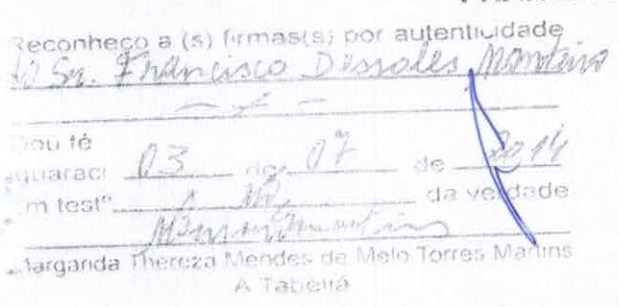 Reconheço a (s) firmas(s) por autenticidade
Sr. Francisco Dessoles Monteiro
Dou fé
quaraci 03 de 07 de 2014
m testº da verdade
Margarida Thereza Mendes de Melo Torres Martins
A Tabeliã